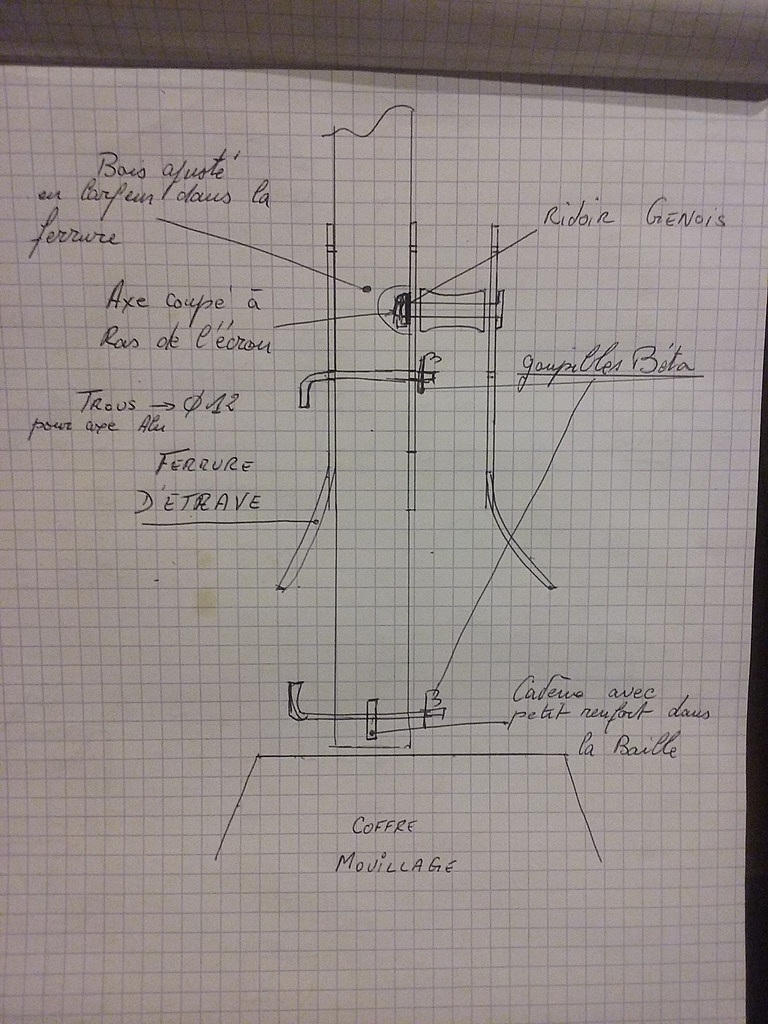 Bois ajusté
en largeur dans la
ferrure
Ridoir GENOIS
Axe coupé à
Ras de l'écrou
goupilles Béta
TROUS → Ø 12
pour axe Alu
FERRURE
D'ETRAVE
Cadène avec
petit renfort dans
la Baille
COFFRE
MOUILLAGE